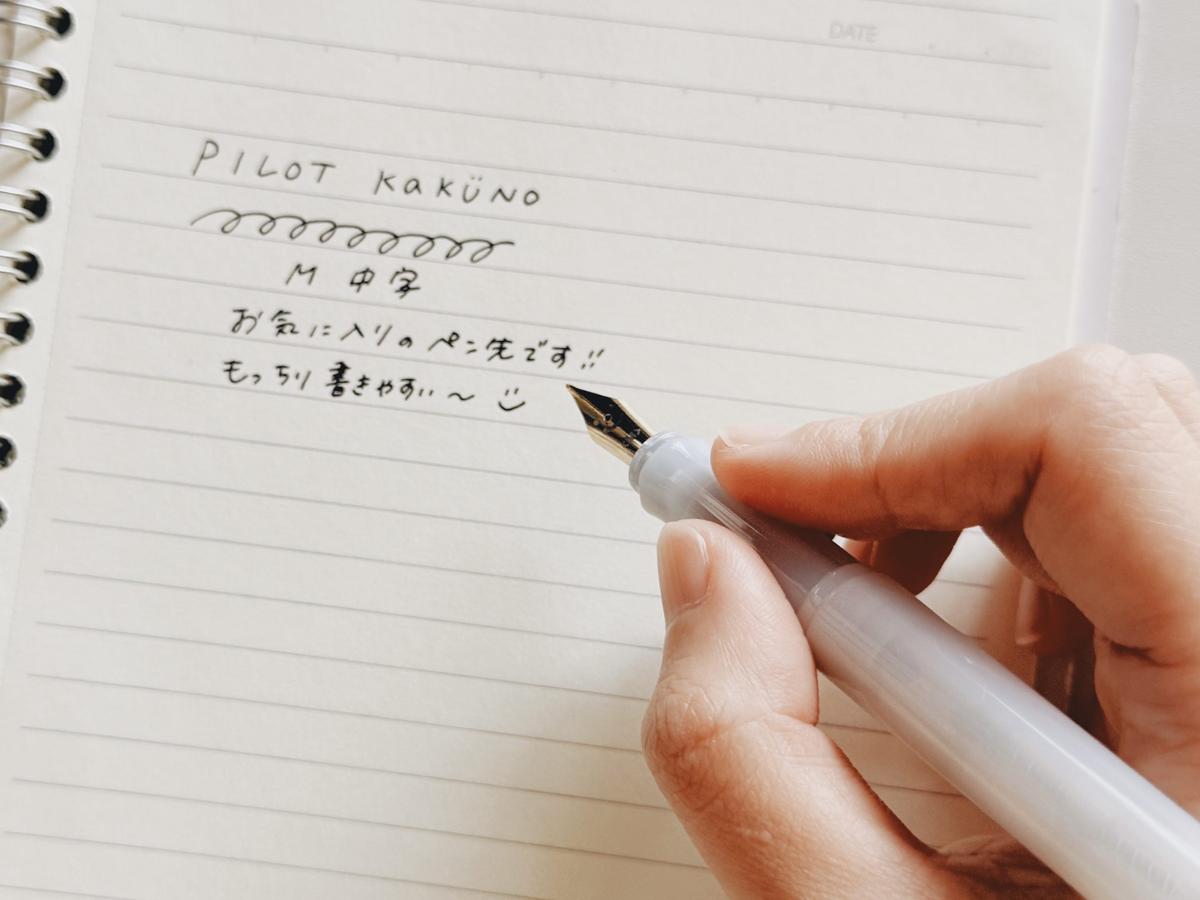 DATE
PILOT KaKÜNO
M 中字
お気に入りのペン先です!!
もっちり書きやすい〜